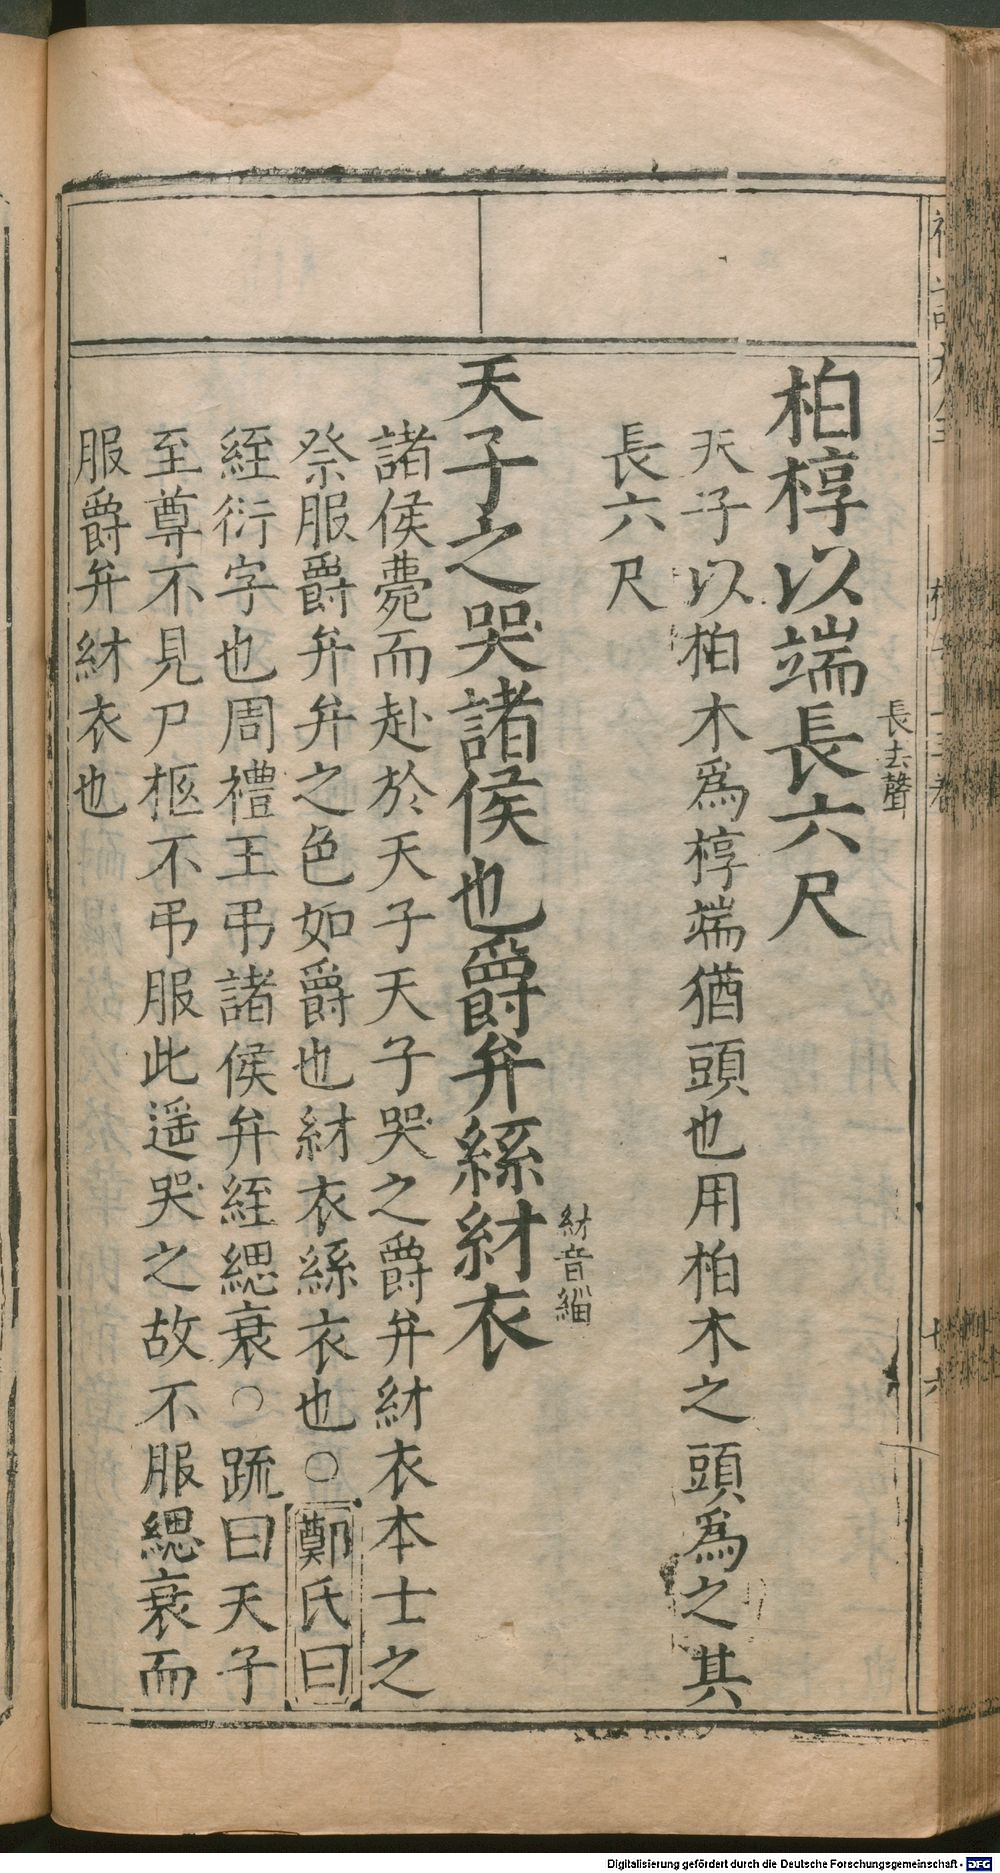 柏椁以端長六尺
長去聲
天子以柏木爲椁端猶頭也用柏木之頭爲之其
長六尺
天子之哭諸侯也爵弁絰紂衣
紂音緇
諸侯薨而赴於天子天子哭之爵弁紂衣本士之
祭服爵弁弁之色如爵也紂衣絲衣也○鄭氏曰
絰衍字也周禮王弔諸侯弁絰緦衰○疏曰天子
至尊不見尸柩不弔服此遥哭之故不服緦衰而
服爵弁紂衣也
Digitalisierung gefördert durch die Deutsche Forschungsgemeinschaft - DFG